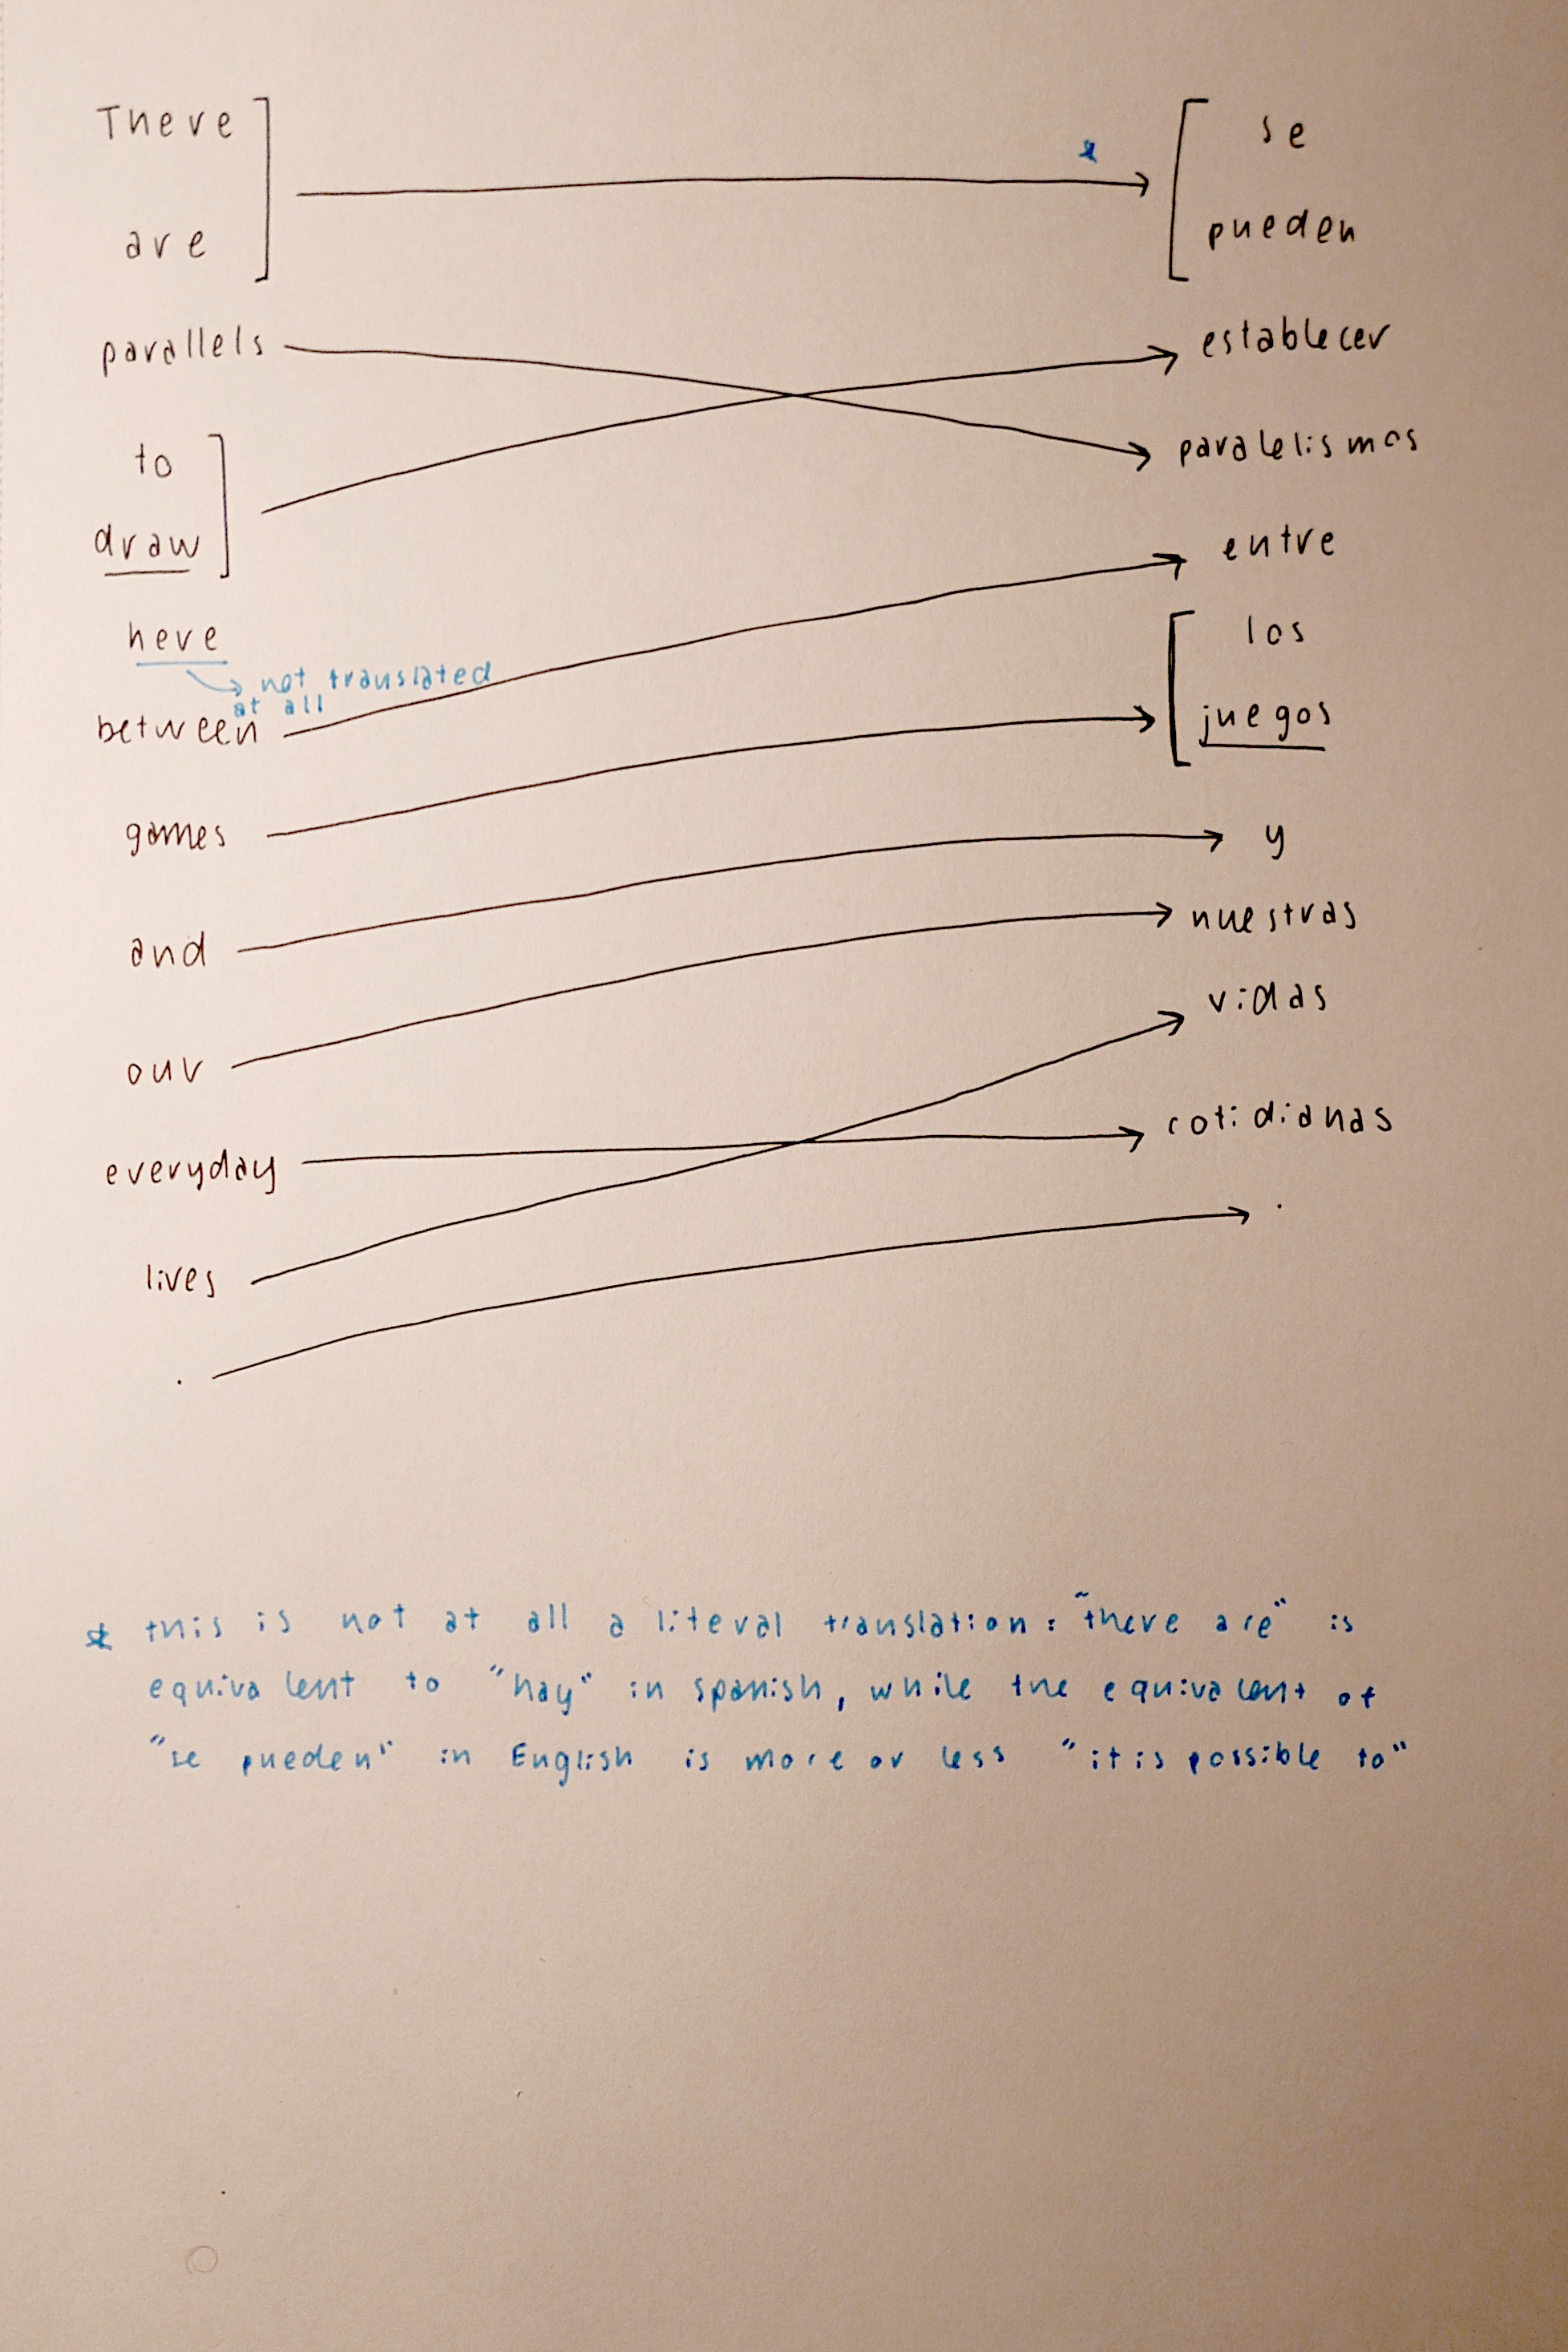 There
are
parallels
to
draw
here
not translated
at all
between
games
and
our
everyday
lives
.
*
se
pueden
establecer
paralelismos
entre
los
juegos
y
nuestras
vidas
cotidianas
.
* this is not at all a literal translation: "there are" is
equivalent to "hay" in spanish, while the equivalent of
"se pueden" in English is more or less "it is possible to"